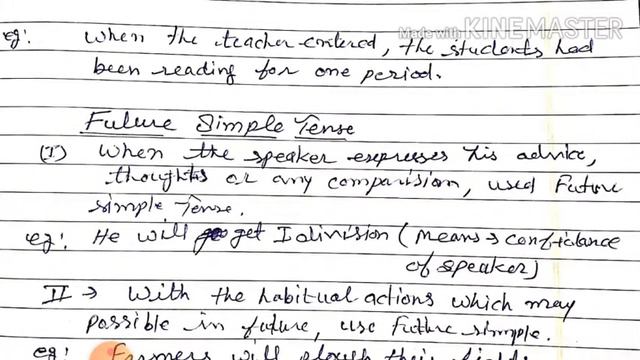 Made with KINEMASTER
eg: When the teacher entered, the students had
been reading for one period.
Future Simple Tense
(I) When the speaker expresses his advice,
thoughts or any comparision, used Future
simple Tense.
eg: He will get I division (Means → confidance
of speaker)
II → With the habitual actions which may
possible in future, use future simple.
eg: Farmers will plough their fields